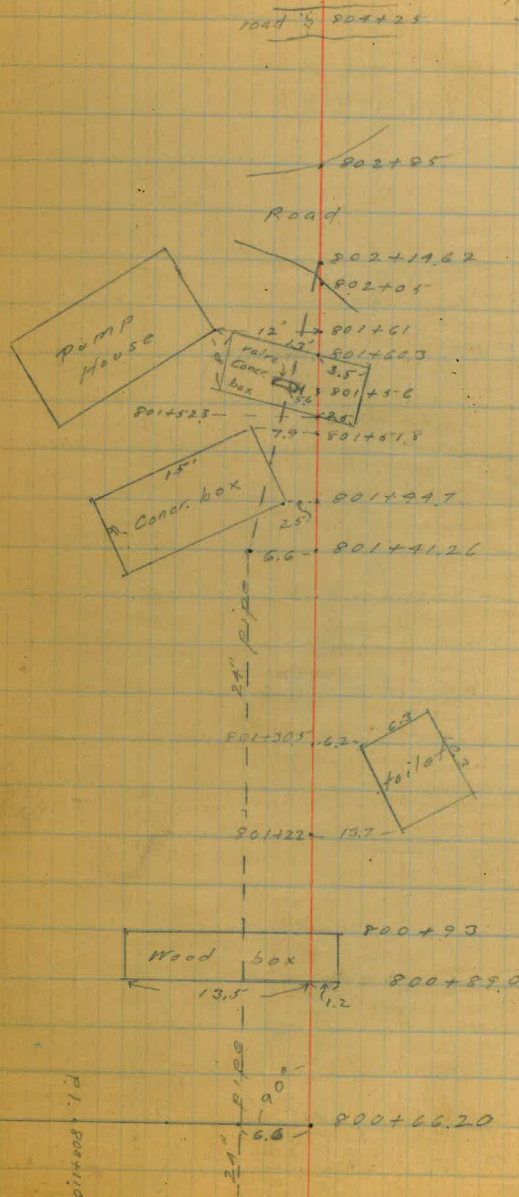 road 804+25
802+85
Road
802+14.62
802+05
Pump
House
12' 801+61
13' 801+60.3
valve
Concr.
box
3.5
801+56
801+52.3 2.5
7.9 801+51.8
15'
Concr. box
801+44.7
25
6.6 801+41.26
24" pipe
801+30.5 6.2
6.3
toilet
801+22 13.7
800+93
Wood box
800+89.0
13.5
1.2
90°
24" pipe
6.6 800+66.20
P.I.